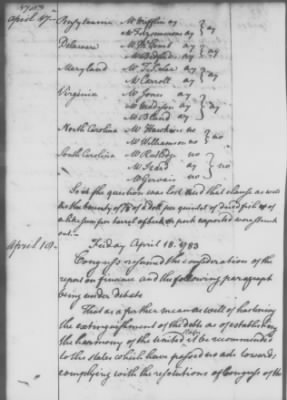 1783
April 17. Pensylvania Mr Mifflin ay } ay
Mr Fitzsimmons ay
Delaware Mr Bedford ay } ay
Maryland Mr T. S. Lee ay } ay
Mr Carroll ay
Virginia Mr Jones ay } ay
Mr Madison ay
Mr Bland ay
North Carolina Mr Hawkins no } no
Mr Williamson no
South Carolina Mr Rutledge no } no
Mr Izard ay
Mr Gervais no
So the question was lost and that clause as well
as the bounty of of a doll. per quintal of dried fish & of
a like sum per barrel of beef & pork exported were struck
out.
April 18. Friday April 18. 1783
Congress resumed the consideration of the
report on finance and the following paragraph
being under debate
That as a further mean as well of hastening
the extinguishment of the debts as of establishing
the harmony of the united States it be recommended
to the states which have passed no acts towards
complying with the resolutions of Congress of the